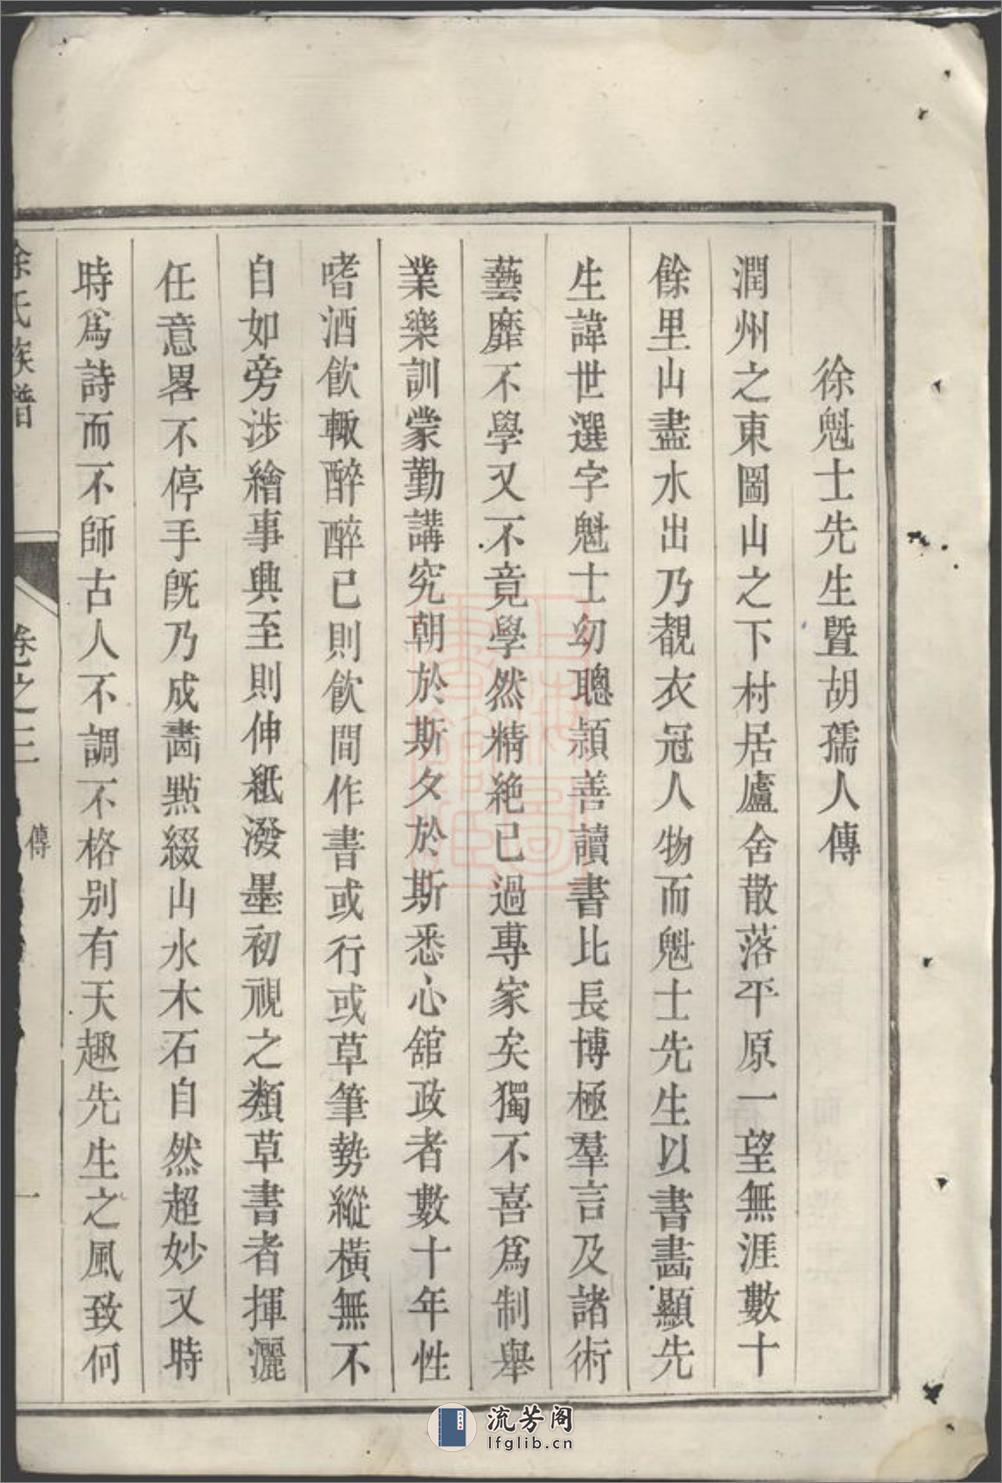 徐魁士先生暨胡孺人傳
潤州之東圌山之下村居廬舍散落平原一望無涯數十
餘里山盡水出乃覩衣冠人物而魁士先生以書畵顯先
生諱世選字魁士幼聰頴善讀書比長博極羣言及諸術
藝靡不學又不竟學然精絶已過專家矣獨不喜爲制舉
業樂訓蒙勤講究朝於斯夕於斯悉心舘政者數十年性
嗜酒飲輙醉醉已則飲間作書或行或草筆勢縱橫無不
自如旁涉繪事興至則伸紙潑墨初視之類草書者揮灑
任意畧不停手旣乃成畵㸃綴山水木石自然超妙又時
時爲詩而不師古人不調不格別有天趣先生之風致何
徐氏族譜 卷之三 傳 一
流芳阁
lfglib.cn